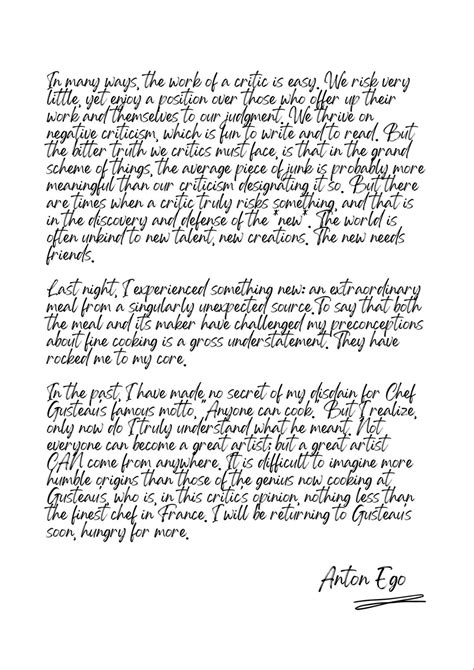 In many ways, the work of a critic is easy. We risk very
little, yet enjoy a position over those who offer up their
work and themselves to our judgment. We thrive on
negative criticism, which is fun to write and to read. But
the bitter truth we critics must face, is that in the grand
scheme of things, the average piece of junk is probably more
meaningful than our criticism designating it so. But there
are times when a critic truly risks something, and that is
in the discovery and defense of the *new*. The world is
often unkind to new talent, new creations. The new needs
friends.
Last night, I experienced something new: an extraordinary
meal from a singularly unexpected source. To say that both
the meal and its maker have challenged my preconceptions
about fine cooking is a gross understatement. They have
rocked me to my core.
In the past, I have made no secret of my disdain for Chef
Gusteau's famous motto, "Anyone can cook." But I realize,
only now do I truly understand what he meant. Not
everyone can become a great artist; but a great artist
CAN come from anywhere. It is difficult to imagine more
humble origins than those of the genius now cooking at
Gusteau's, who is, in this critic's opinion, nothing less than
the finest chef in France. I will be returning to Gusteau's
soon, hungry for more.
Anton Ego